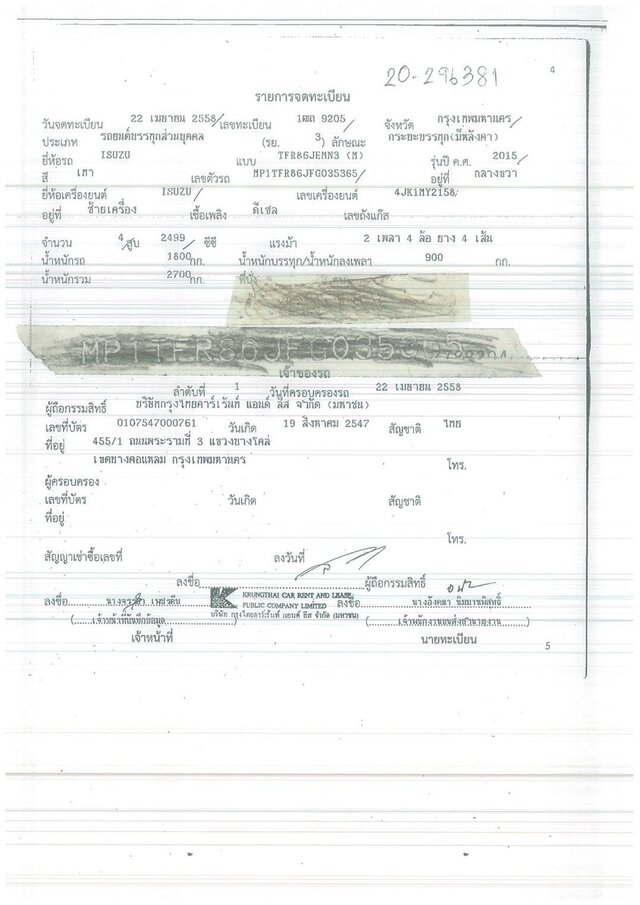 20-296381
4
รายการจดทะเบียน
วันจดทะเบียน 22 เมษายน 2558 เลขทะเบียน 1ฒถ 9205 จังหวัด กรุงเทพมหานคร
ประเภท รถยนต์บรรทุกส่วนบุคคล (รย. 3) ลักษณะ กระบะบรรทุก(มีหลังคา)
ยี่ห้อรถ ISUZU แบบ TFR86JEMN3 (M) รุ่นปี ค.ศ. 2015
สี เทา เลขตัวรถ MP1TFR86JFG035365 อยู่ที่ กลางขวา
ยี่ห้อเครื่องยนต์ ISUZU เลขเครื่องยนต์ 4JK1MY2158
อยู่ที่ ซ้ายเครื่อง เชื้อเพลิง ดีเซล เลขถังแก๊ส
จำนวน 4 สูบ 2499 ซีซี แรงม้า 2 เพลา 4 ล้อ ยาง 4 เส้น
น้ำหนักรถ 1800 กก. น้ำหนักบรรทุก/น้ำหนักลงเพลา 900 กก.
น้ำหนักรวม 2700 กก. ที่นั่ง
MP1TFR86JFG035365
เจ้าของรถ
ลำดับที่ 1 วันที่ครอบครองรถ 22 เมษายน 2558
ผู้ถือกรรมสิทธิ์ บริษัทกรุงไทยคาร์เร้นท์ แอนด์ ลีส จำกัด (มหาชน)
เลขที่บัตร 0107547000761 วันเกิด 19 สิงหาคม 2547 สัญชาติ ไทย
ที่อยู่ 455/1 ถนนพระรามที่ 3 แขวงบางโคล่
เขตบางคอแหลม กรุงเทพมหานคร โทร.
ผู้ครอบครอง
เลขที่บัตร วันเกิด สัญชาติ
ที่อยู่
โทร.
สัญญาเช่าซื้อเลขที่ ลงวันที่
ลงชื่อ ผู้ถือกรรมสิทธิ์
KRUNGTHAI CAR RENT AND LEASE
PUBLIC COMPANY LIMITED
บริษัท กรุงไทยคาร์เร้นท์ แอนด์ ลีส จำกัด (มหาชน)
ลงชื่อ ลงชื่อ นางอังคณา นิมมานพิสุทธิ์
(เจ้าหน้าที่บันทึกข้อมูล) (เจ้าพนักงานขนส่งชำนาญงาน)
เจ้าหน้าที่ นายทะเบียน
5